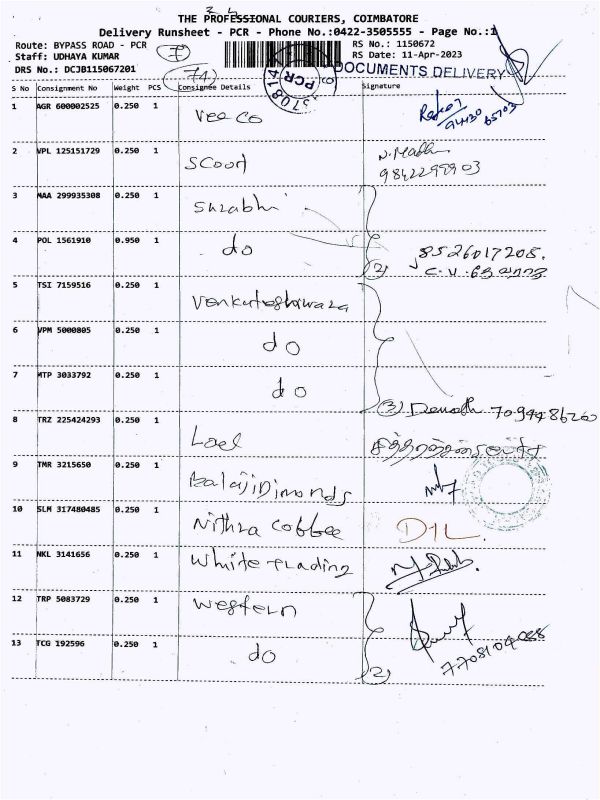 THE PROFESSIONAL COURIERS, COIMBATORE
Delivery Runsheet - PCR - Phone No.:0422-3505555 - Page No.:1
Route: BYPASS ROAD - PCR
Staff: UDHAYA KUMAR
DRS No.: DCJB115067201
RS No.: 1150672
RS Date: 11-Apr-2023
DOCUMENTS DELIVERY
7
71
PCR
S No Consignment No Weight PCS Consignee Details Signature
1 AGR 600002525 0.250 1 Vee Co
2 VPL 125151729 0.250 1 Scoorl
9842299903
3 MAA 299935308 0.250 1 Surabhi
4 POL 1561910 0.950 1 do
(2) 8526017208.
5 TSI 7159516 0.250 1 Venkateshwara
6 VPM 5000805 0.250 1 do
7 MTP 3033792 0.250 1 do
(3) 7094486260
8 TRZ 225424293 0.250 1 Lael
9 TMR 3215650 0.250 1 Balaji Dimonds
10 SLM 317480485 0.250 1 Nithra Coffee
11 NKL 3141656 0.250 1 White Trading
12 TRP 5083729 0.250 1 Western
13 TCG 192596 0.250 1 do (2)